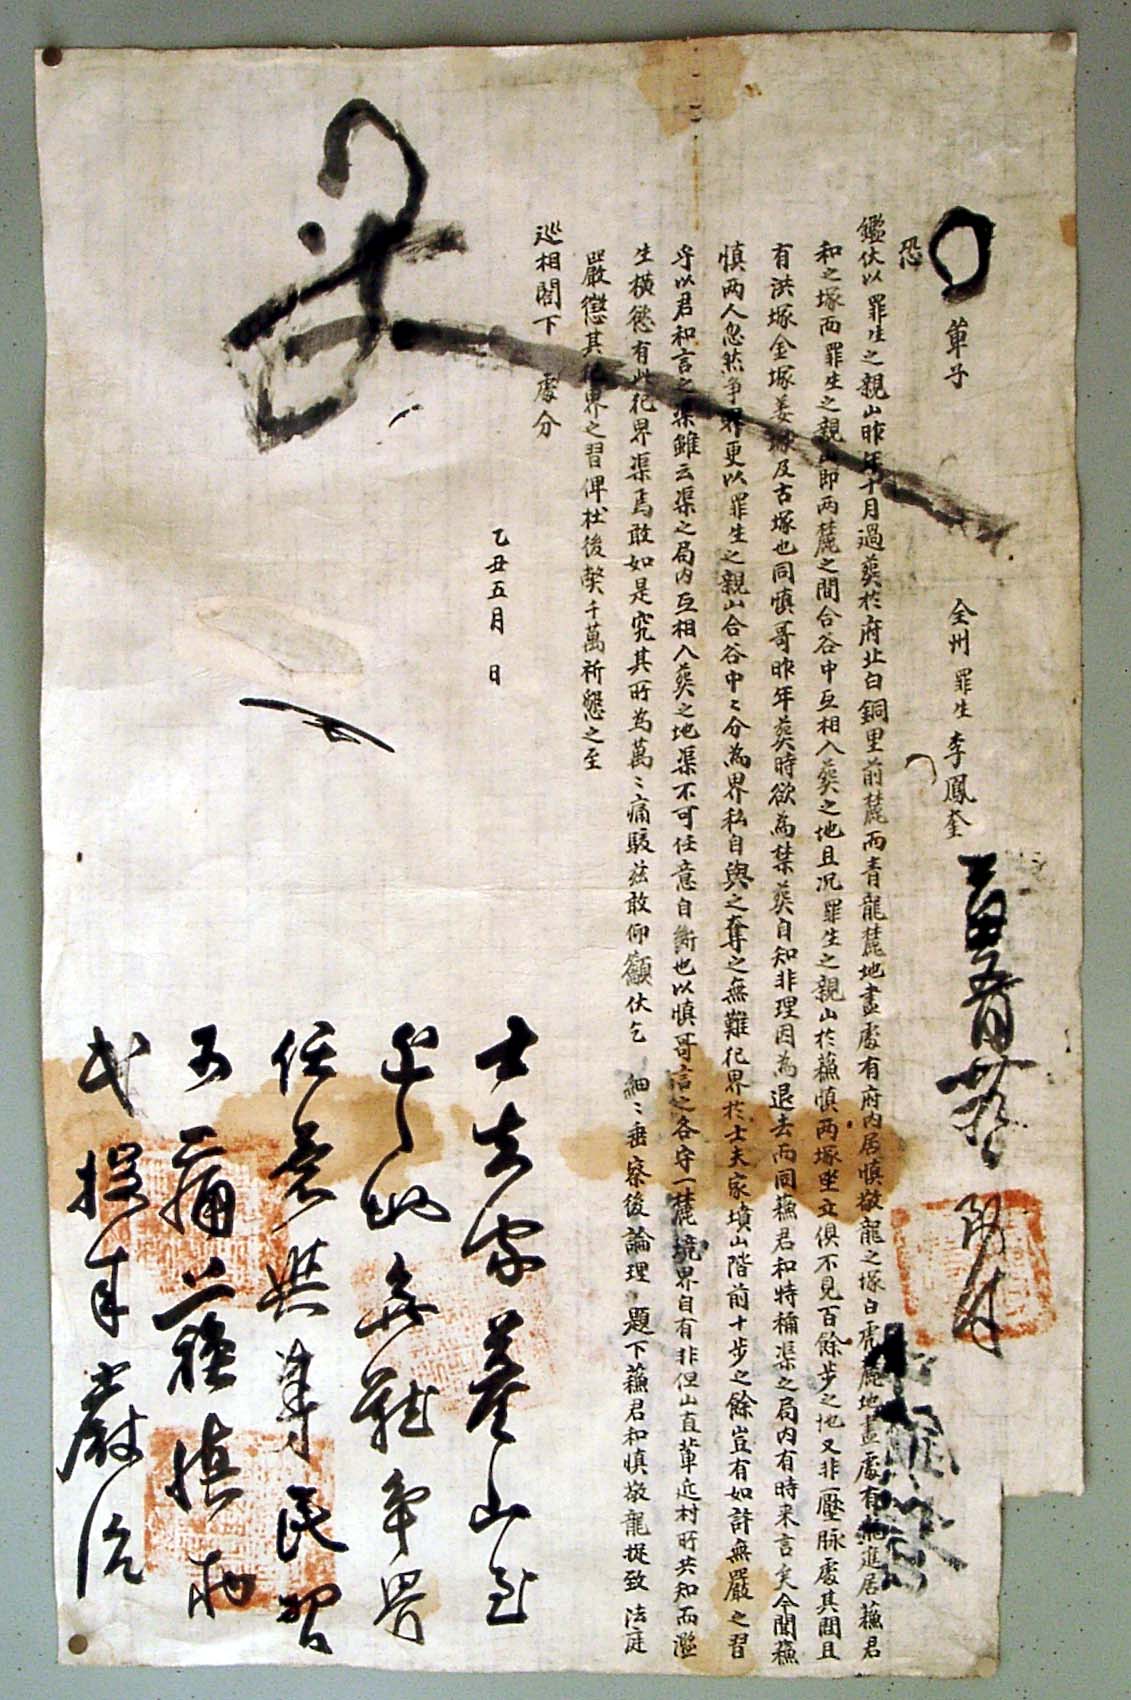 單子
全州 罪生 李鳳奎
恐
鑑伏以罪生之親山昨年十月過葬於府北白銅里前麓而青龍麓地盡處有府內居愼敬龍之塚白虎麓地盡處有進居蘓君
和之塚而罪生之親山即兩麓之間合谷中互相入葬之地且況罪生之親山於蘓愼兩塚坐立俱不見百餘步之地又非壓脉處其間且
有洪塚金塚姜塚及古塚也同愼哥昨年葬時欲爲禁葬自知非理因爲退去而同蘓君和特稱渠之局內有時來言矣今聞蘓
愼兩人忽然爭界更以罪生之親山合谷中〻分爲界私自與之奪之無難犯界於士夫家墳山階前十步之餘豈有如許無嚴之習
乎以君和言之渠雖云渠之局內互相入葬之地渠不可任意自斷也以愼哥言之各守一麓境界自有非但山直輩近村所共知而濫
生橫慾有此犯界渠焉敢如是究其所爲萬〻痛駭玆敢仰籲伏乞 細〻垂察後論理 題下蘓君和愼敬龍捉致 法庭
嚴懲其犯界之習俾杜後弊千萬祈懇之至
巡相閤下 處分
乙丑五月 日
士夫家墓山至
近之地無難爭界
任意與奪民習
可痛蘓愼兩
民捉來嚴治